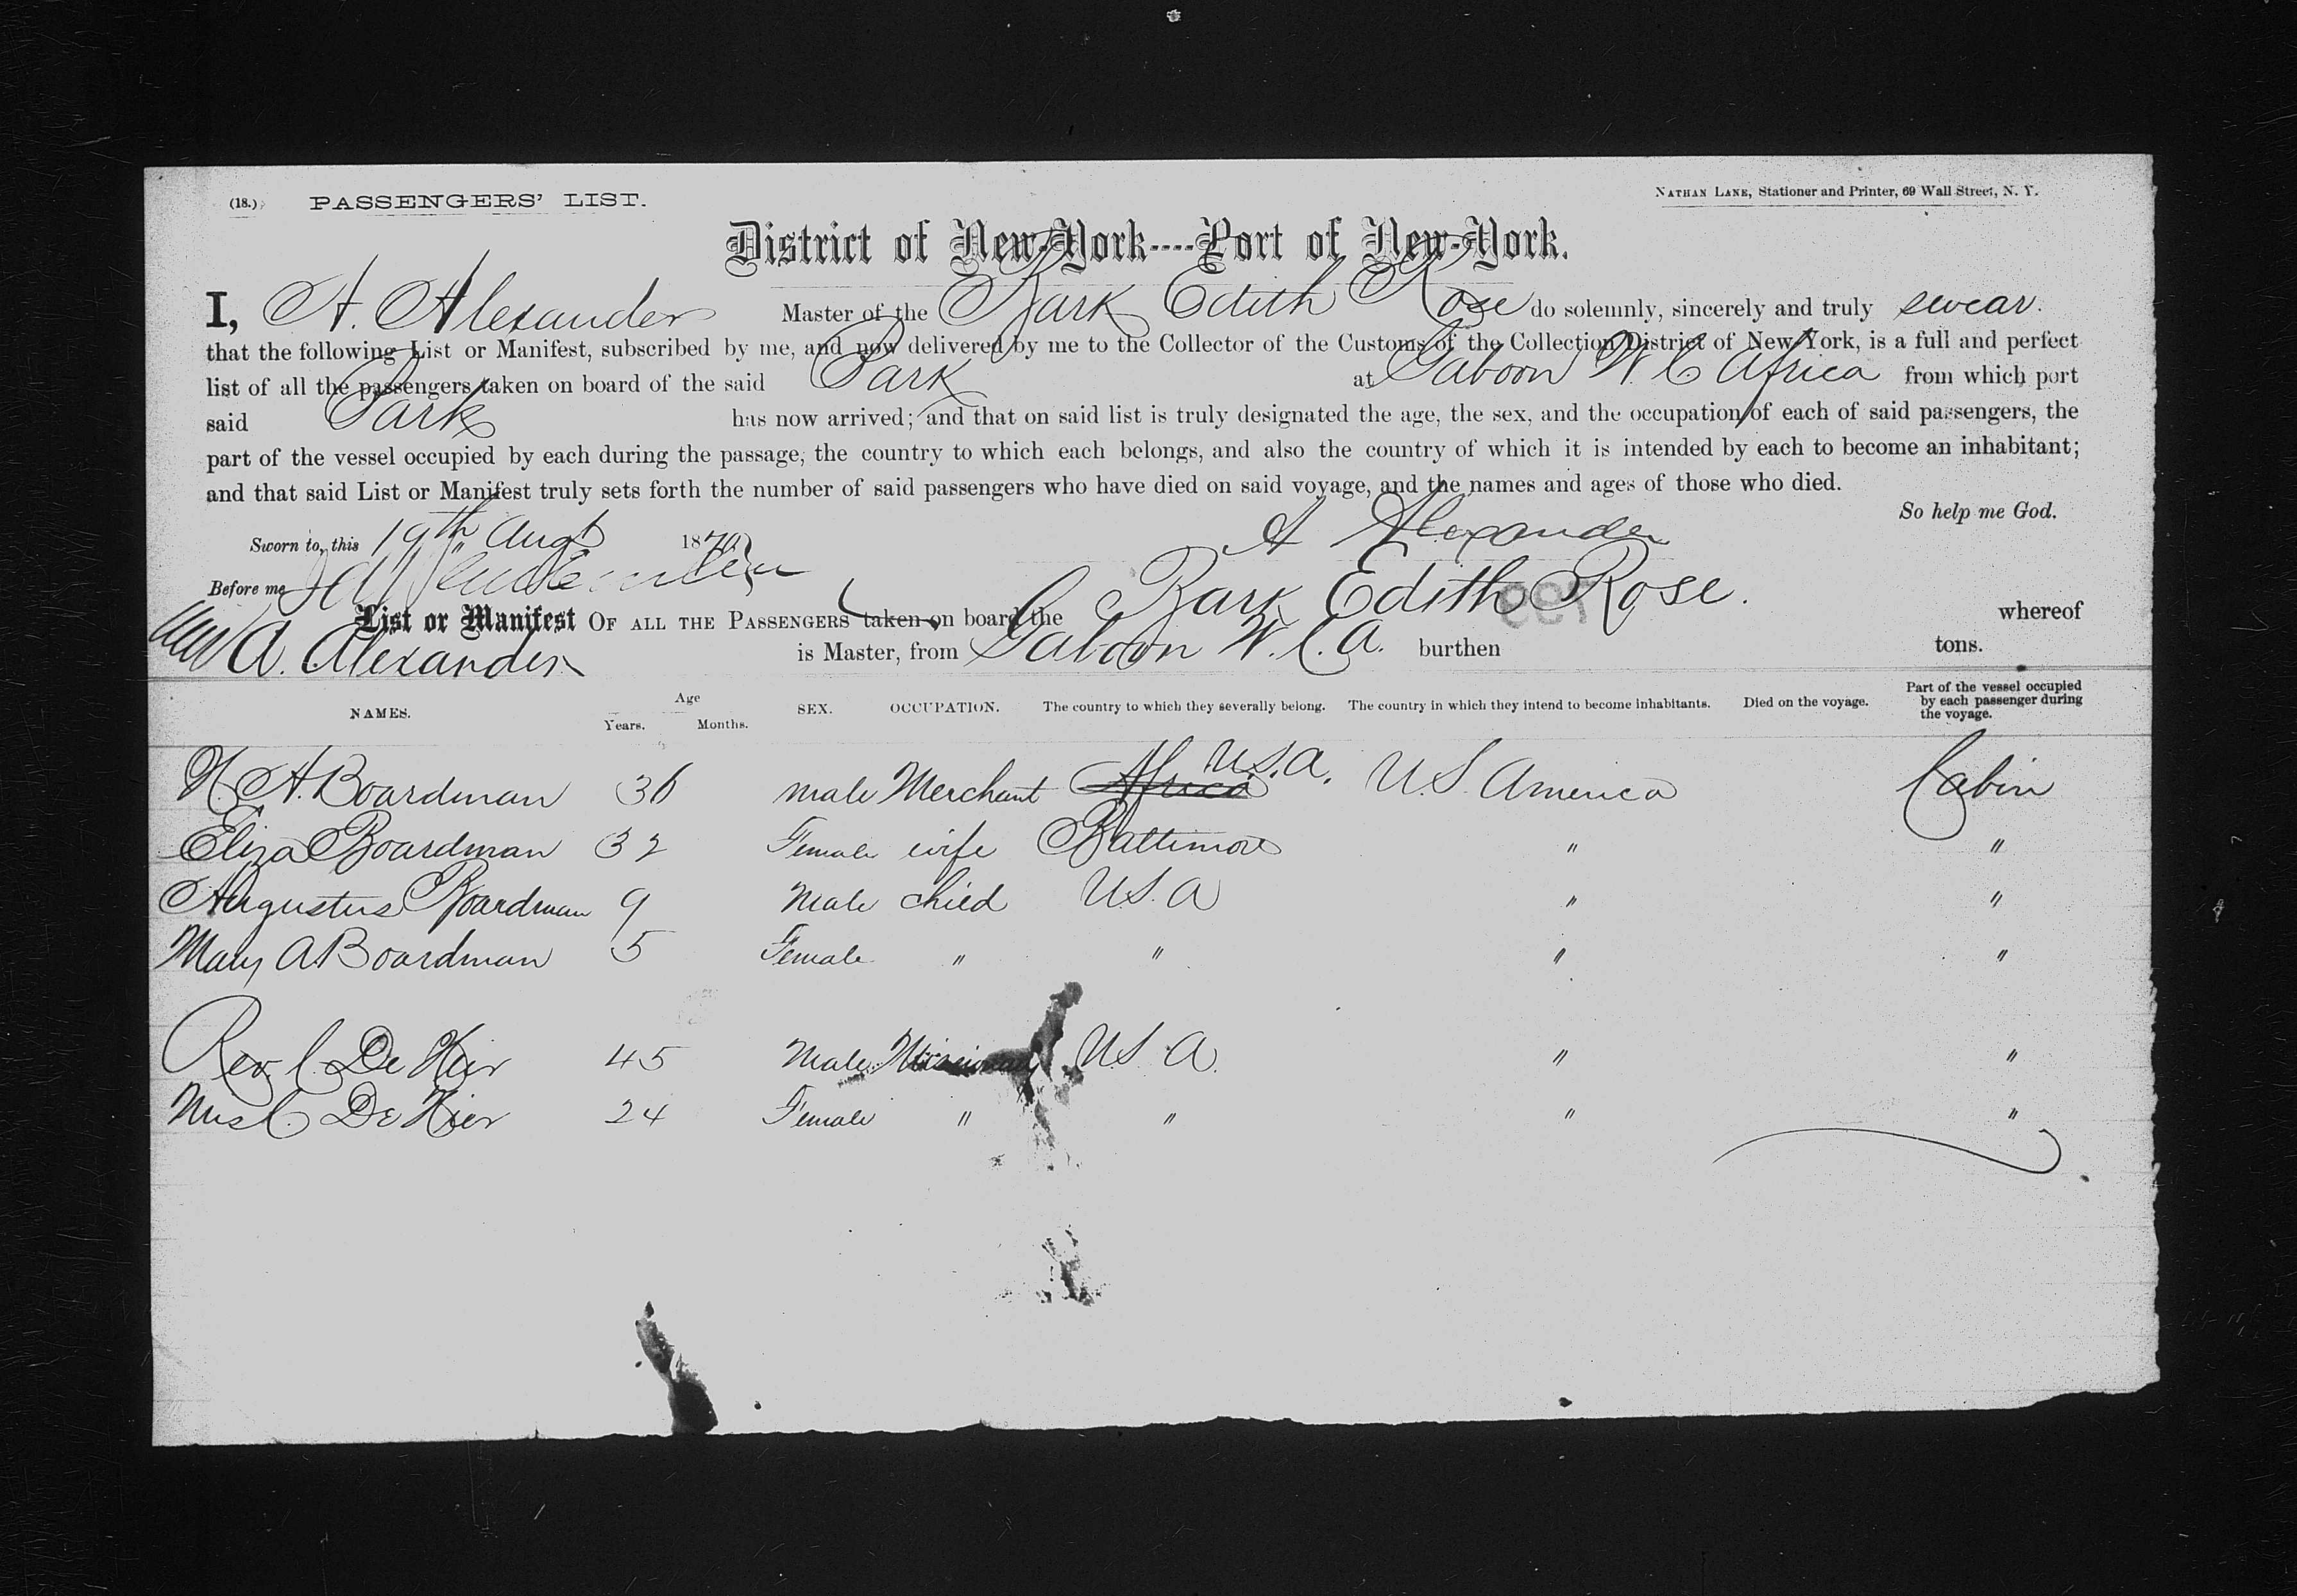 (18.) PASSENGERS' LIST. NATHAN LANE, Stationer and Printer, 69 Wall Street, N. Y.
District of New-York----Port of New-York.
I, A. Alexander Master of the Bark Edith Rose do solemnly, sincerely and truly swear.
that the following List or Manifest, subscribed by me, and now delivered by me to the Collector of the Customs of the Collection District of New York, is a full and perfect
list of all the passengers taken on board of the said Bark at Gaboon W. C Africa from which port
said Bark has now arrived; and that on said list is truly designated the age, the sex, and the occupation of each of said passengers, the
part of the vessel occupied by each during the passage, the country to which each belongs, and also the country of which it is intended by each to become an inhabitant;
and that said List or Manifest truly sets forth the number of said passengers who have died on said voyage, and the names and ages of those who died.
So help me God.
Sworn to, this 19th Augt 1870 A Alexander
Before me
List or Manifest OF ALL THE PASSENGERS taken on board the Bark Edith Rose. whereof
A. Alexander is Master, from Gaboon W. C. A. burthen tons.
NAMES. Age Years. Months. SEX. OCCUPATION. The country to which they severally belong. The country in which they intend to become inhabitants. Died on the voyage. Part of the vessel occupied by each passenger during the voyage.
N. A. Boardman 36 male Merchant Africa U.S.A. U.S. America Cabin
Eliza Boardman 32 Female wife Baltimore " "
Augustus Boardman 9 Male child U.S. A " "
Mary A Boardman 5 Female " " " "
Rev. C. De Heer 45 Male Missionary U.S. A. " "
Mrs C. De Heer 24 Female " " " "